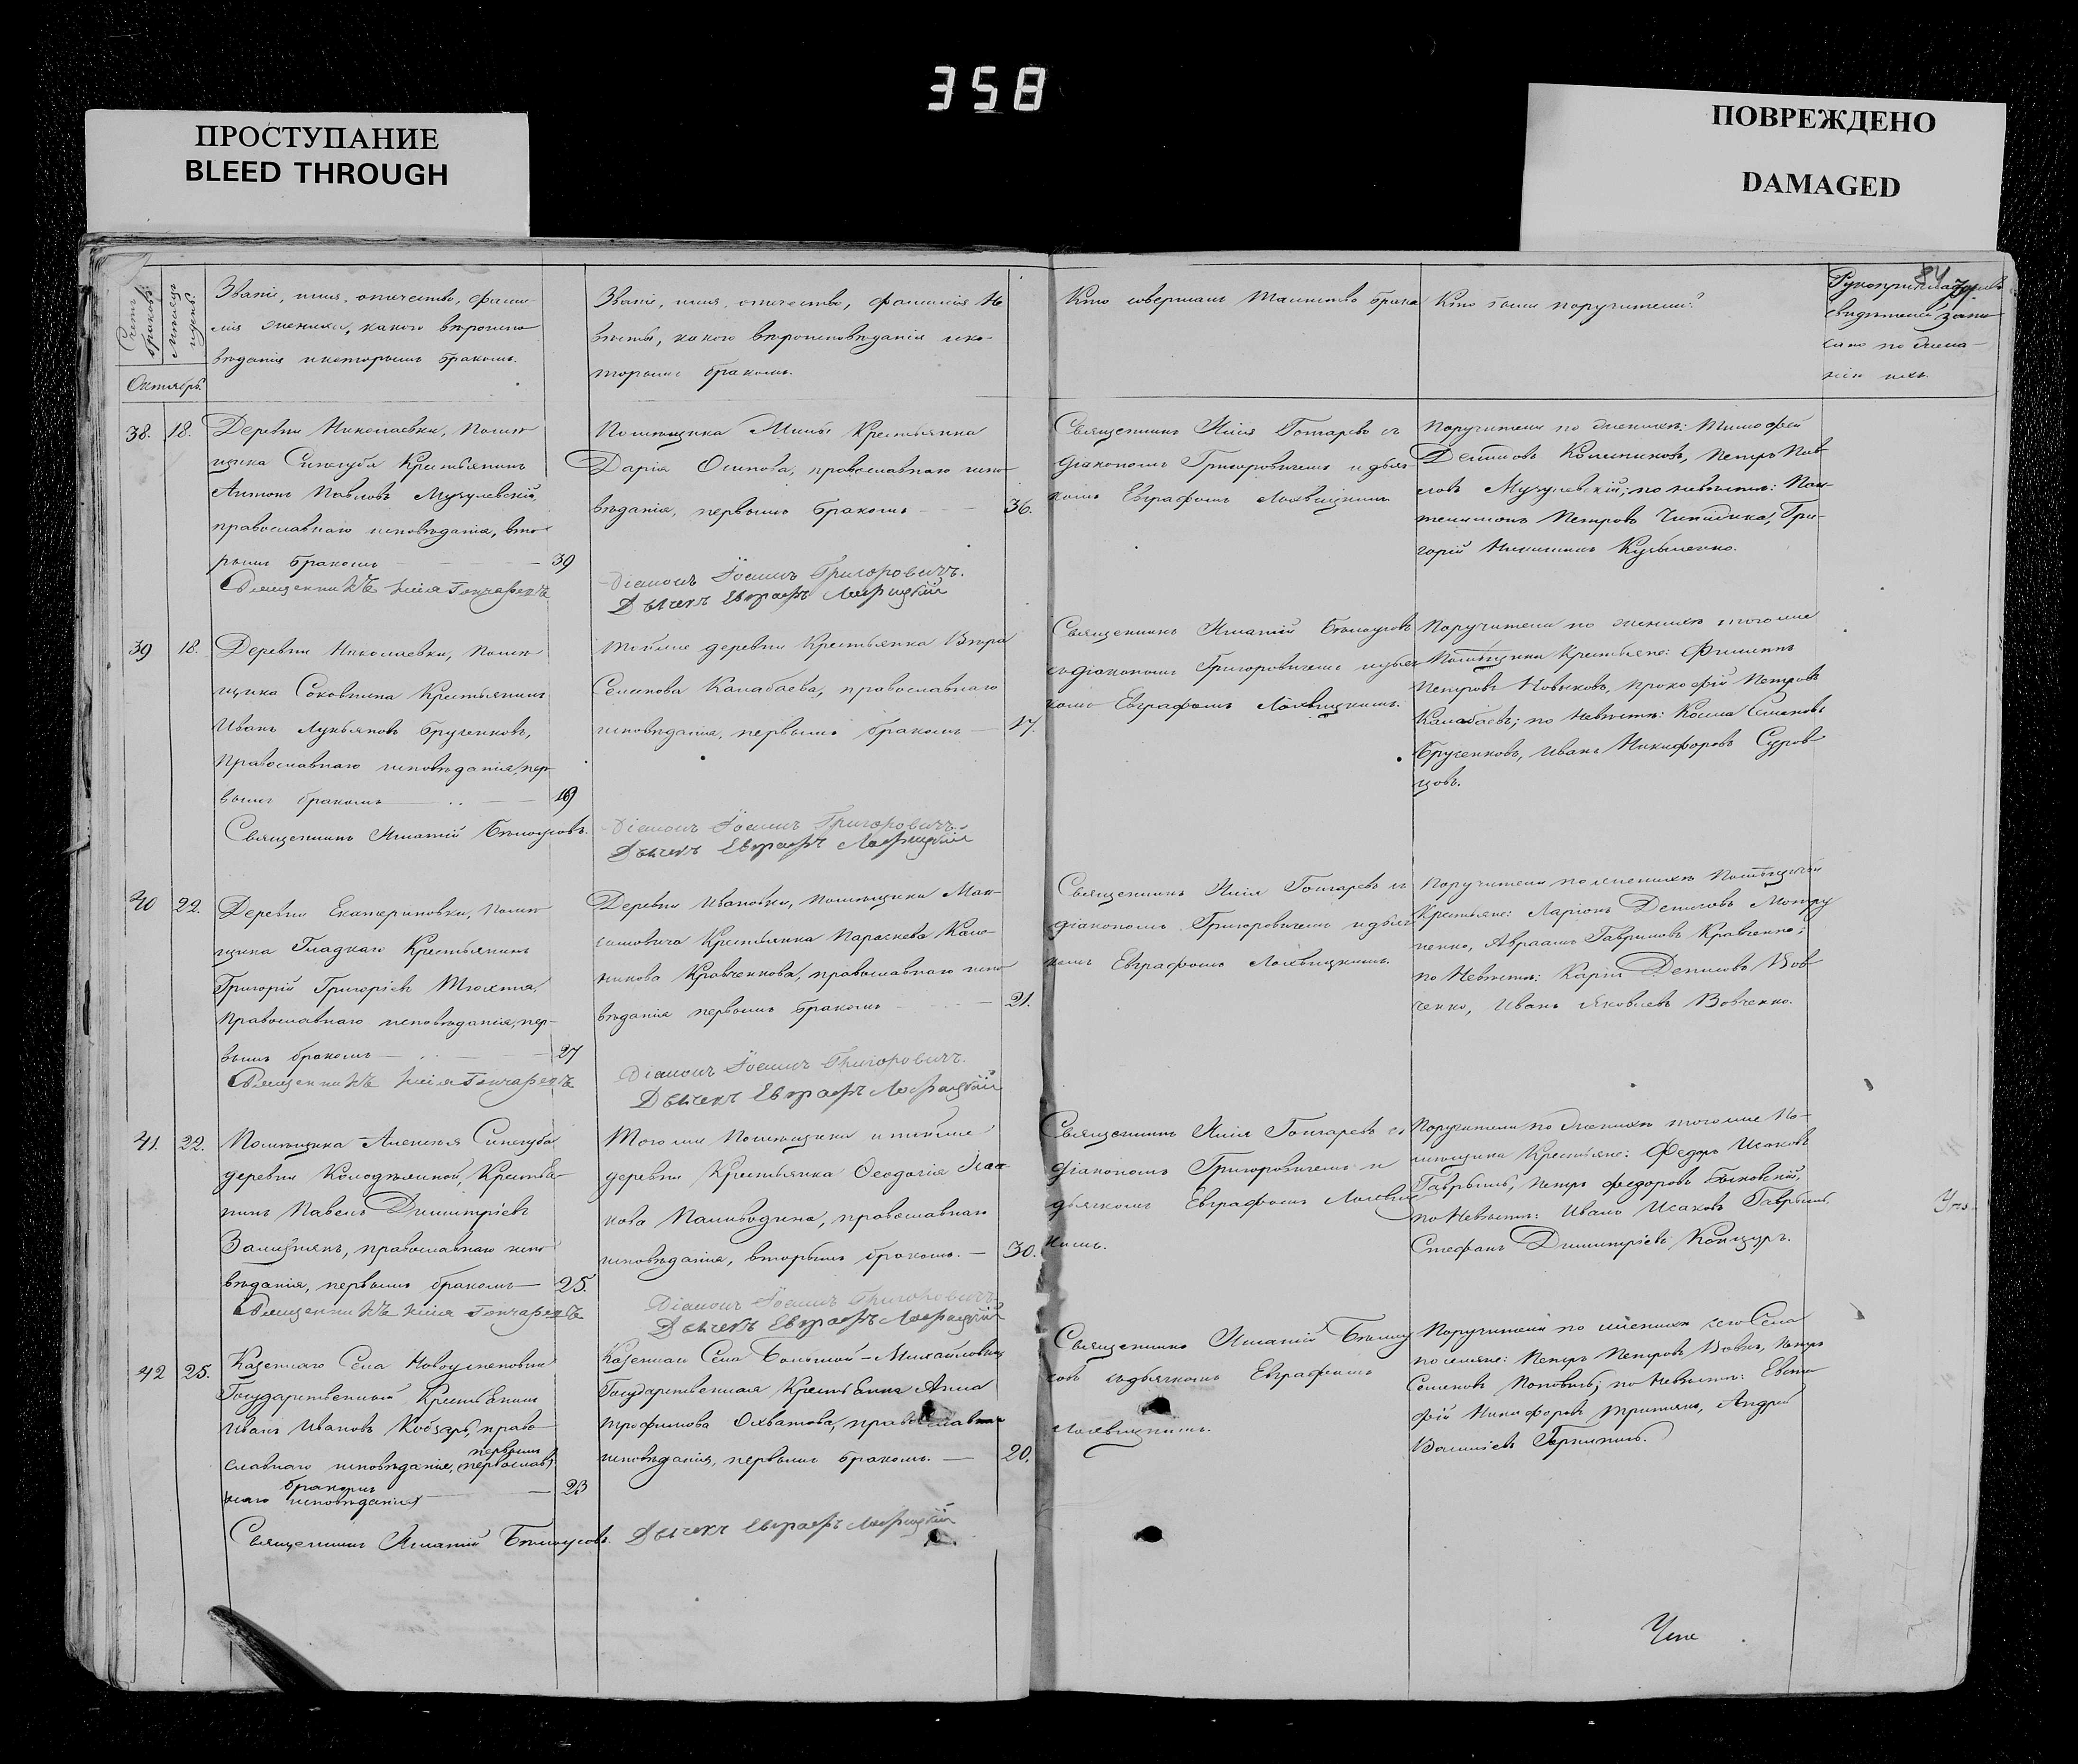 358
ПРОСТУПАНИЕ
BLEED THROUGH
ПОВРЕЖДЕНО
DAMAGED
84
Счетъ браковъ.
Мѣсяцъ и день.
Званіе, имя, отчество, фами-
лія жениха, какого вѣроиспо
вѣданія и которымъ бракомъ.
Званіе, имя, отчество, фамилія Не
вѣсты, какого вѣроисповѣданія и ко-
торымъ бракомъ.
Кто совершалъ Таинство брака
Кто были поручители?
свидѣтелей запи
сано по жела-
нію ихъ.
Октябрь.
38.
18.
Деревни Николаевки, помѣ
щика Синегуба Крестьянинъ
Антонъ Павловъ
православнаго исповѣданія, вто
рымъ бракомъ
39
Священникъ Илія Гончаревъ
Помѣщика Крестьянка
Дарія Осипова, православнаго испо
вѣданія, первымъ бракомъ
36.
Діаконъ Іоаннъ Григоровичъ.
Дьячекъ Евграфъ Лохвицкій
Священникъ Илія Гончаревъ съ
діакономъ Григоровичемъ и дьяч
комъ Евграфомъ Лохвицкимъ
Поручители по женихѣ: Тимофей
Петръ Пав
ловъ по невѣстѣ: Пан
телимонъ Петровъ Гри-
горій Никитинъ Кузьменко.
39
18.
Деревни Николаевки, помѣ
щика Соковнина Крестьянинъ
Иванъ Лукьяновъ Брученковъ,
Православнаго исповѣданія, пер
вымъ бракомъ
19
Священникъ Игнатій Бѣлоусовъ.
Тойже деревни Крестьянка Вѣра
Семенова Калабаева, православнаго
исповѣданія, первымъ бракомъ
17.
Діаконъ Іоаннъ Григоровичъ.
Дьячекъ Евграфъ Лохвицкій
Священникъ Игнатій Бѣлоусовъ
съ діакономъ Григоровичемъ и дьяч
комъ Евграфомъ Лохвицкимъ.
Поручители по женихѣ тогоже
Помѣщика Крестьяне: Филиппъ
Петровъ Новиковъ, Прокофій Петровъ
Калабаевъ; по Невѣстѣ: Косма Семеновъ
Брученковъ, Иванъ Никифоровъ Суров
цовъ.
40
22.
Деревни Екатериновки, помѣ
щика Гладкаго Крестьянинъ
Григорій Григоріевъ
Православнаго исповѣданія, пер-
вымъ бракомъ
27
Священникъ Илія Гончаревъ
Деревни Ивановки, помѣщика Мак-
симовича Крестьянка Параскева
Кравченкова, православнаго испо
вѣданія первымъ бракомъ
21.
Діаконъ Іоаннъ Григоровичъ.
Дьячекъ Евграфъ Лохвицкій
Священникъ Илія Гончаревъ съ
діакономъ Григоровичемъ и дьяч
комъ Евграфомъ Лохвицкимъ.
Поручители по женихѣ Помѣщичьи
Крестьяне: Ларіонъ Денисовъ
Авраамъ Гавриловъ Кравченко;
по Невѣстѣ: Карпъ Денисовъ Вов
ченко, Иванъ Яковлевъ Вовченко.
41.
22.
Помѣщика Алексѣя Синегуба
деревни Колодяжной, Крестья
нинъ Павелъ Димитріевъ
православнаго испо
вѣданія, первымъ бракомъ
25.
Священникъ Илія Гончаревъ
Тогоже Помѣщика и тойже
деревни Крестьянка Ѳеодосія Исаа
кова православнаго
исповѣданія, вторымъ бракомъ.
30.
Діаконъ Іоаннъ Григоровичъ
Дьячекъ Евграфъ Лохвицкій
Священникъ Илія Гончаревъ съ
діакономъ Григоровичемъ и
дьячкомъ Евграфомъ Лохвиц
кимъ.
Поручители по женихѣ тогоже По-
мѣщика Крестьяне: Федоръ Исаковъ
Гаврышъ, Петръ Федоровъ
по Невѣстѣ: Иванъ Исаковъ Гаврышъ,
Стефанъ Димитріевъ
42
25.
Казеннаго Села
Государственный Крестьянинъ
Иванъ Ивановъ Кобзарь, право
славнаго исповѣданія, первымъ
бракомъ
23
Священникъ Игнатій Бѣлоусовъ.
Казеннаго Села Большой-Михайловки
Государственная Крестьянка Анна
Трофимова Охватова, православнаго
исповѣданія, первымъ бракомъ.
20.
Дьячекъ Евграфъ Лохвицкій
Священникъ Игнатій Бѣлоу
совъ съ дьячкомъ Евграфомъ
Лохвицкимъ.
Поручители по женихѣ сего Села
поселяне: Петръ Петровъ Петръ
Семеновъ по Невѣстѣ:
Никифоровъ Андрей